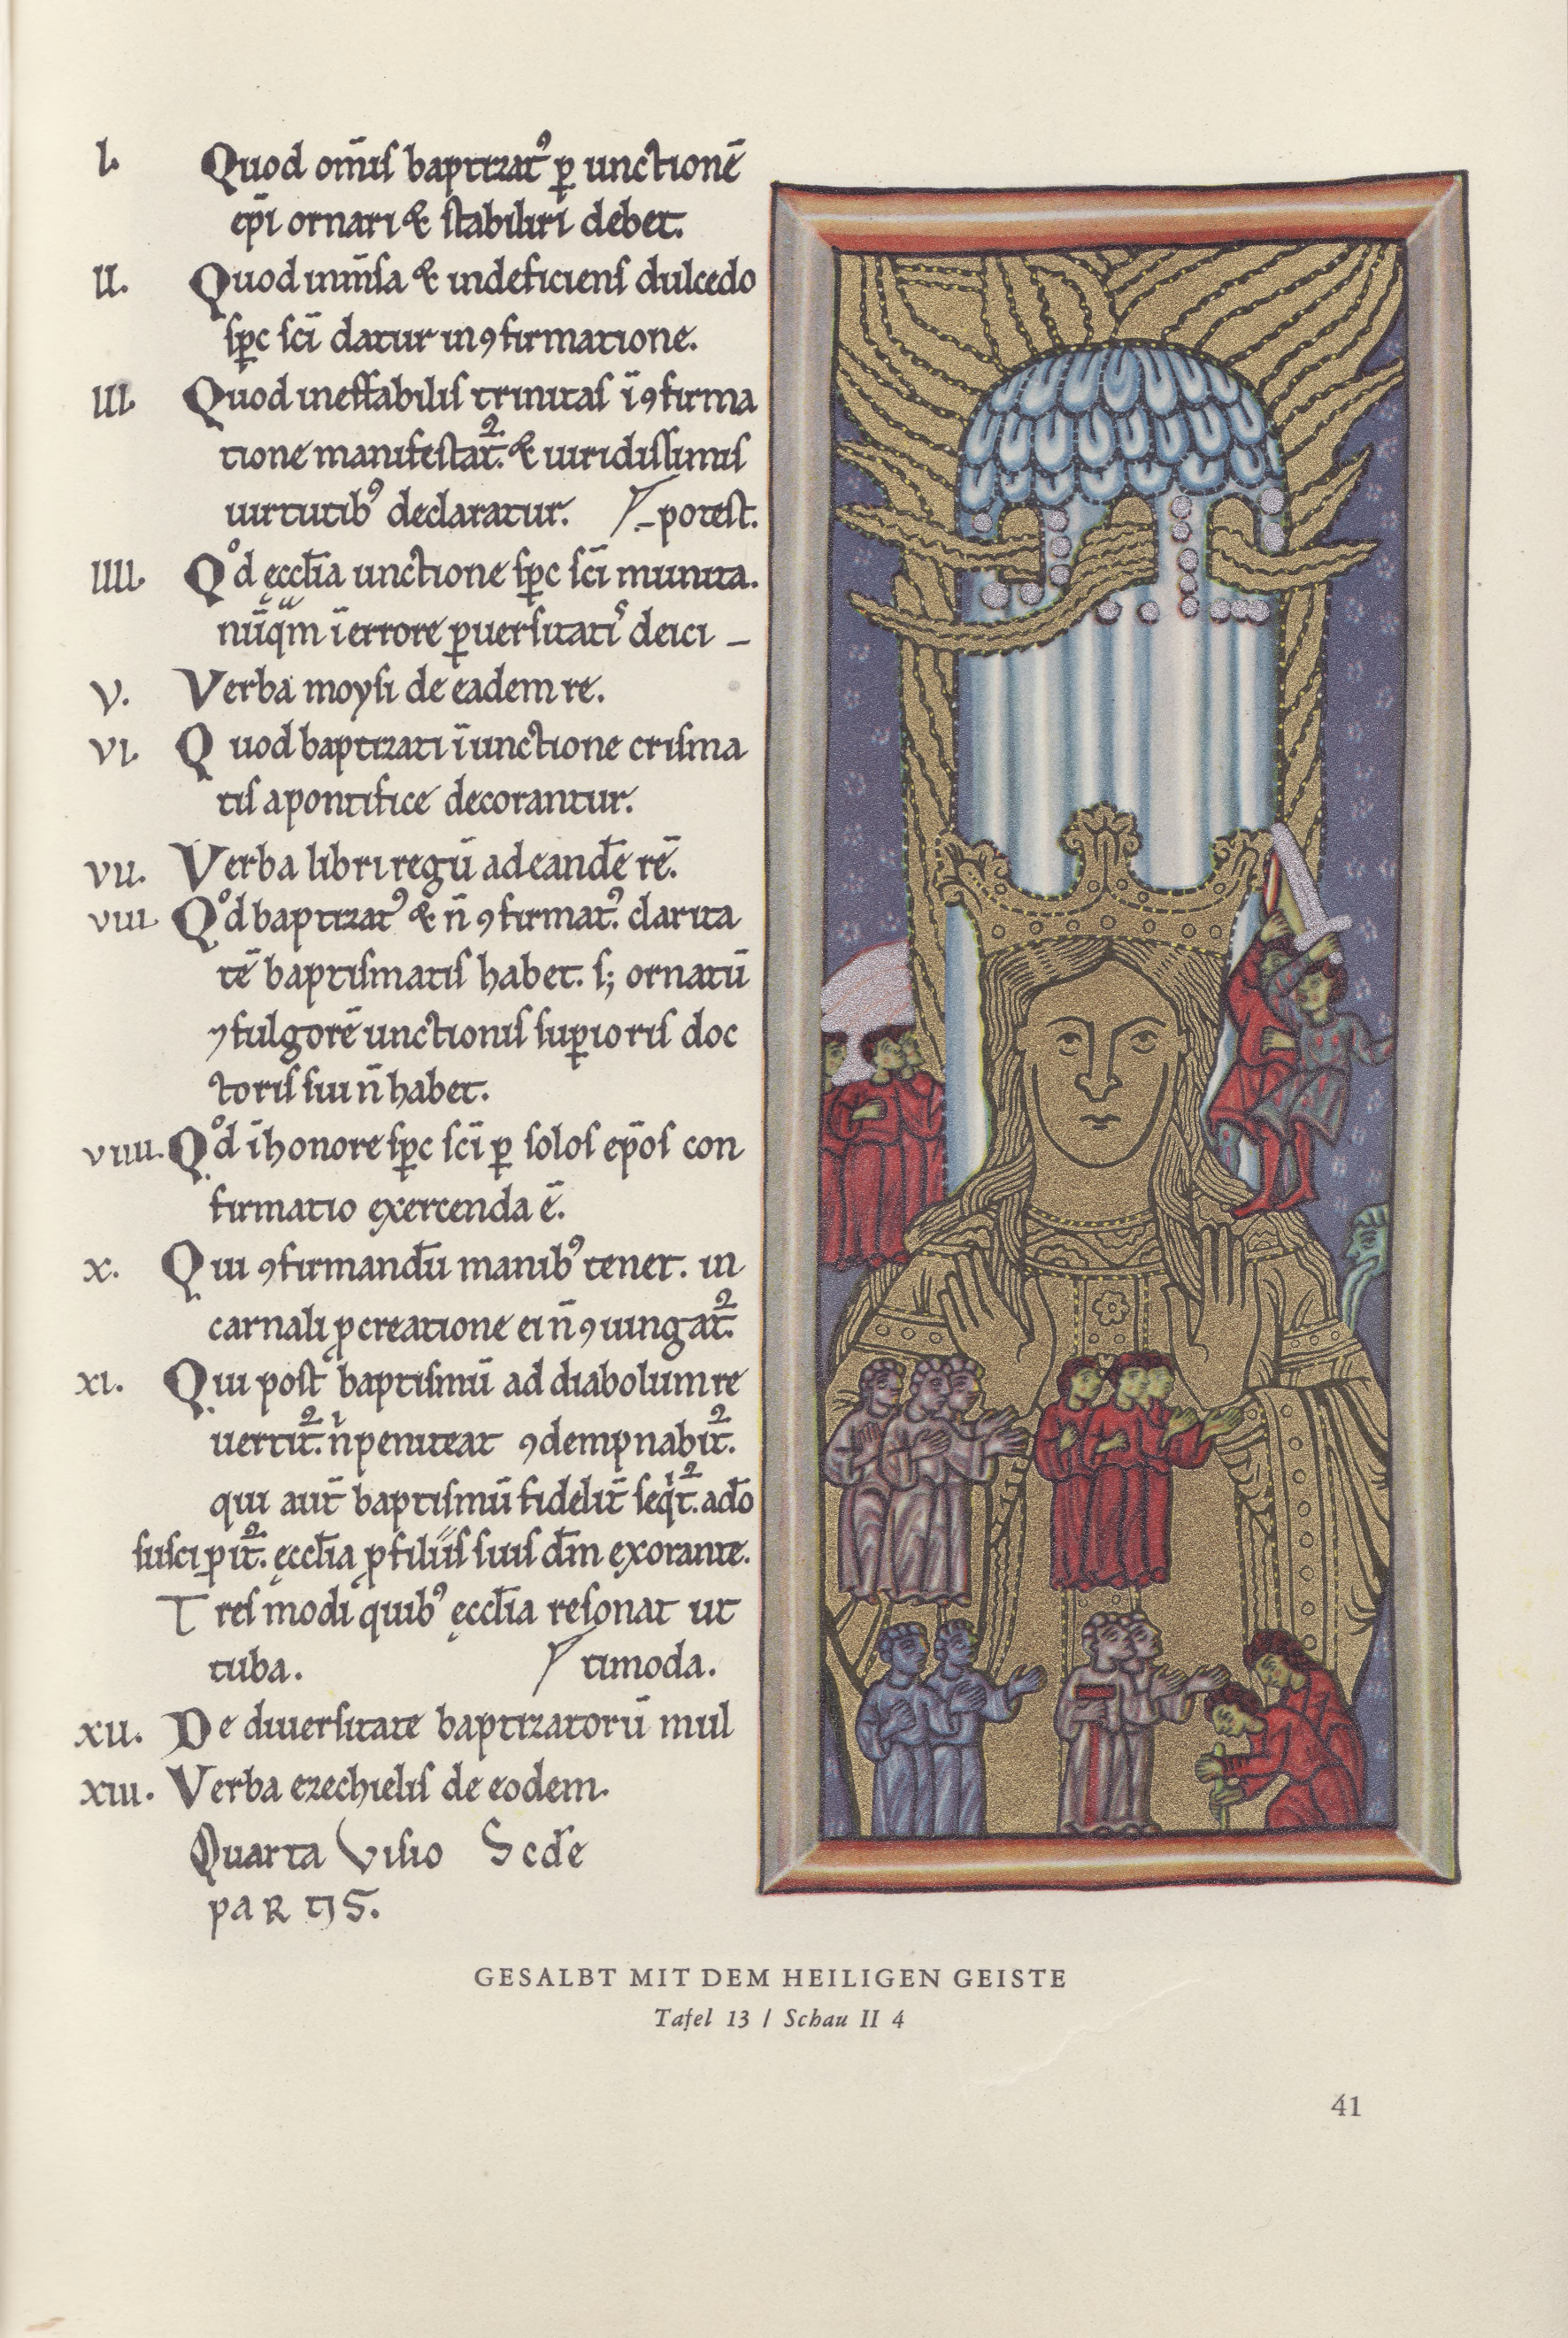 I. Quod om̄is baptizatꝰ ꝑ unctionē
ep̄i ornari & stabiliri debet.
II. Quod inm̄sa & indeficiens dulcedo
sp̄c sc̄i datur in ꝯfirmatione.
III. Quod ineffabilis trinitas ī ꝯfirma
tione manifestat᷑. & uiridissimis
uirtutibꝰ declaratur. potest.
IIII. Qͦd ęccl̄ia unctione sp̄c sc̄i munita.
nūqᷓm ī errore ꝑuersitatis deici –
V. Verba moysi de eadem re.
VI. Quod baptizati ī unctione crisma
tis a pontifice decorantur.
VII. Verba libri regū ad eandē rē.
VIII. Qͦd baptizatꝰ & n̄ ꝯfirmatꝰ. clarita
tē baptismatis habet. s; ornatū
⁊ fulgorē unctionis suꝑioris doc
toris sui n̄ habet.
VIIII. Qͦd ī honore sp̄c sc̄i ꝑ solos ep̄os con
firmatio exercenda ē.
X. Qui ꝯfirmandū manibꝰ tenet. in
carnali ꝓcreatione ei n̄ ꝯiungat᷑.
XI. Qui post baptismū ad diabolum re
uertit᷑. nͥ peniteat ꝯdempnabit᷑.
qui aut̄ baptismū fidelit̄ seqͥt᷑. a dō
suscipit᷑. ęccl̄ia ꝓ filiis suis dm̄ exorante.
Tres modi quibꝰ ęccl̄ia resonat ut
tuba. timoda.
XII. De diuersitate baptizatorū mul
XIII. Verba ezechielis de eodem.
Quarta Visio Scd̄e
paRtIS.
GESALBT MIT DEM HEILIGEN GEISTE
Tafel 13 / Schau II 4
41